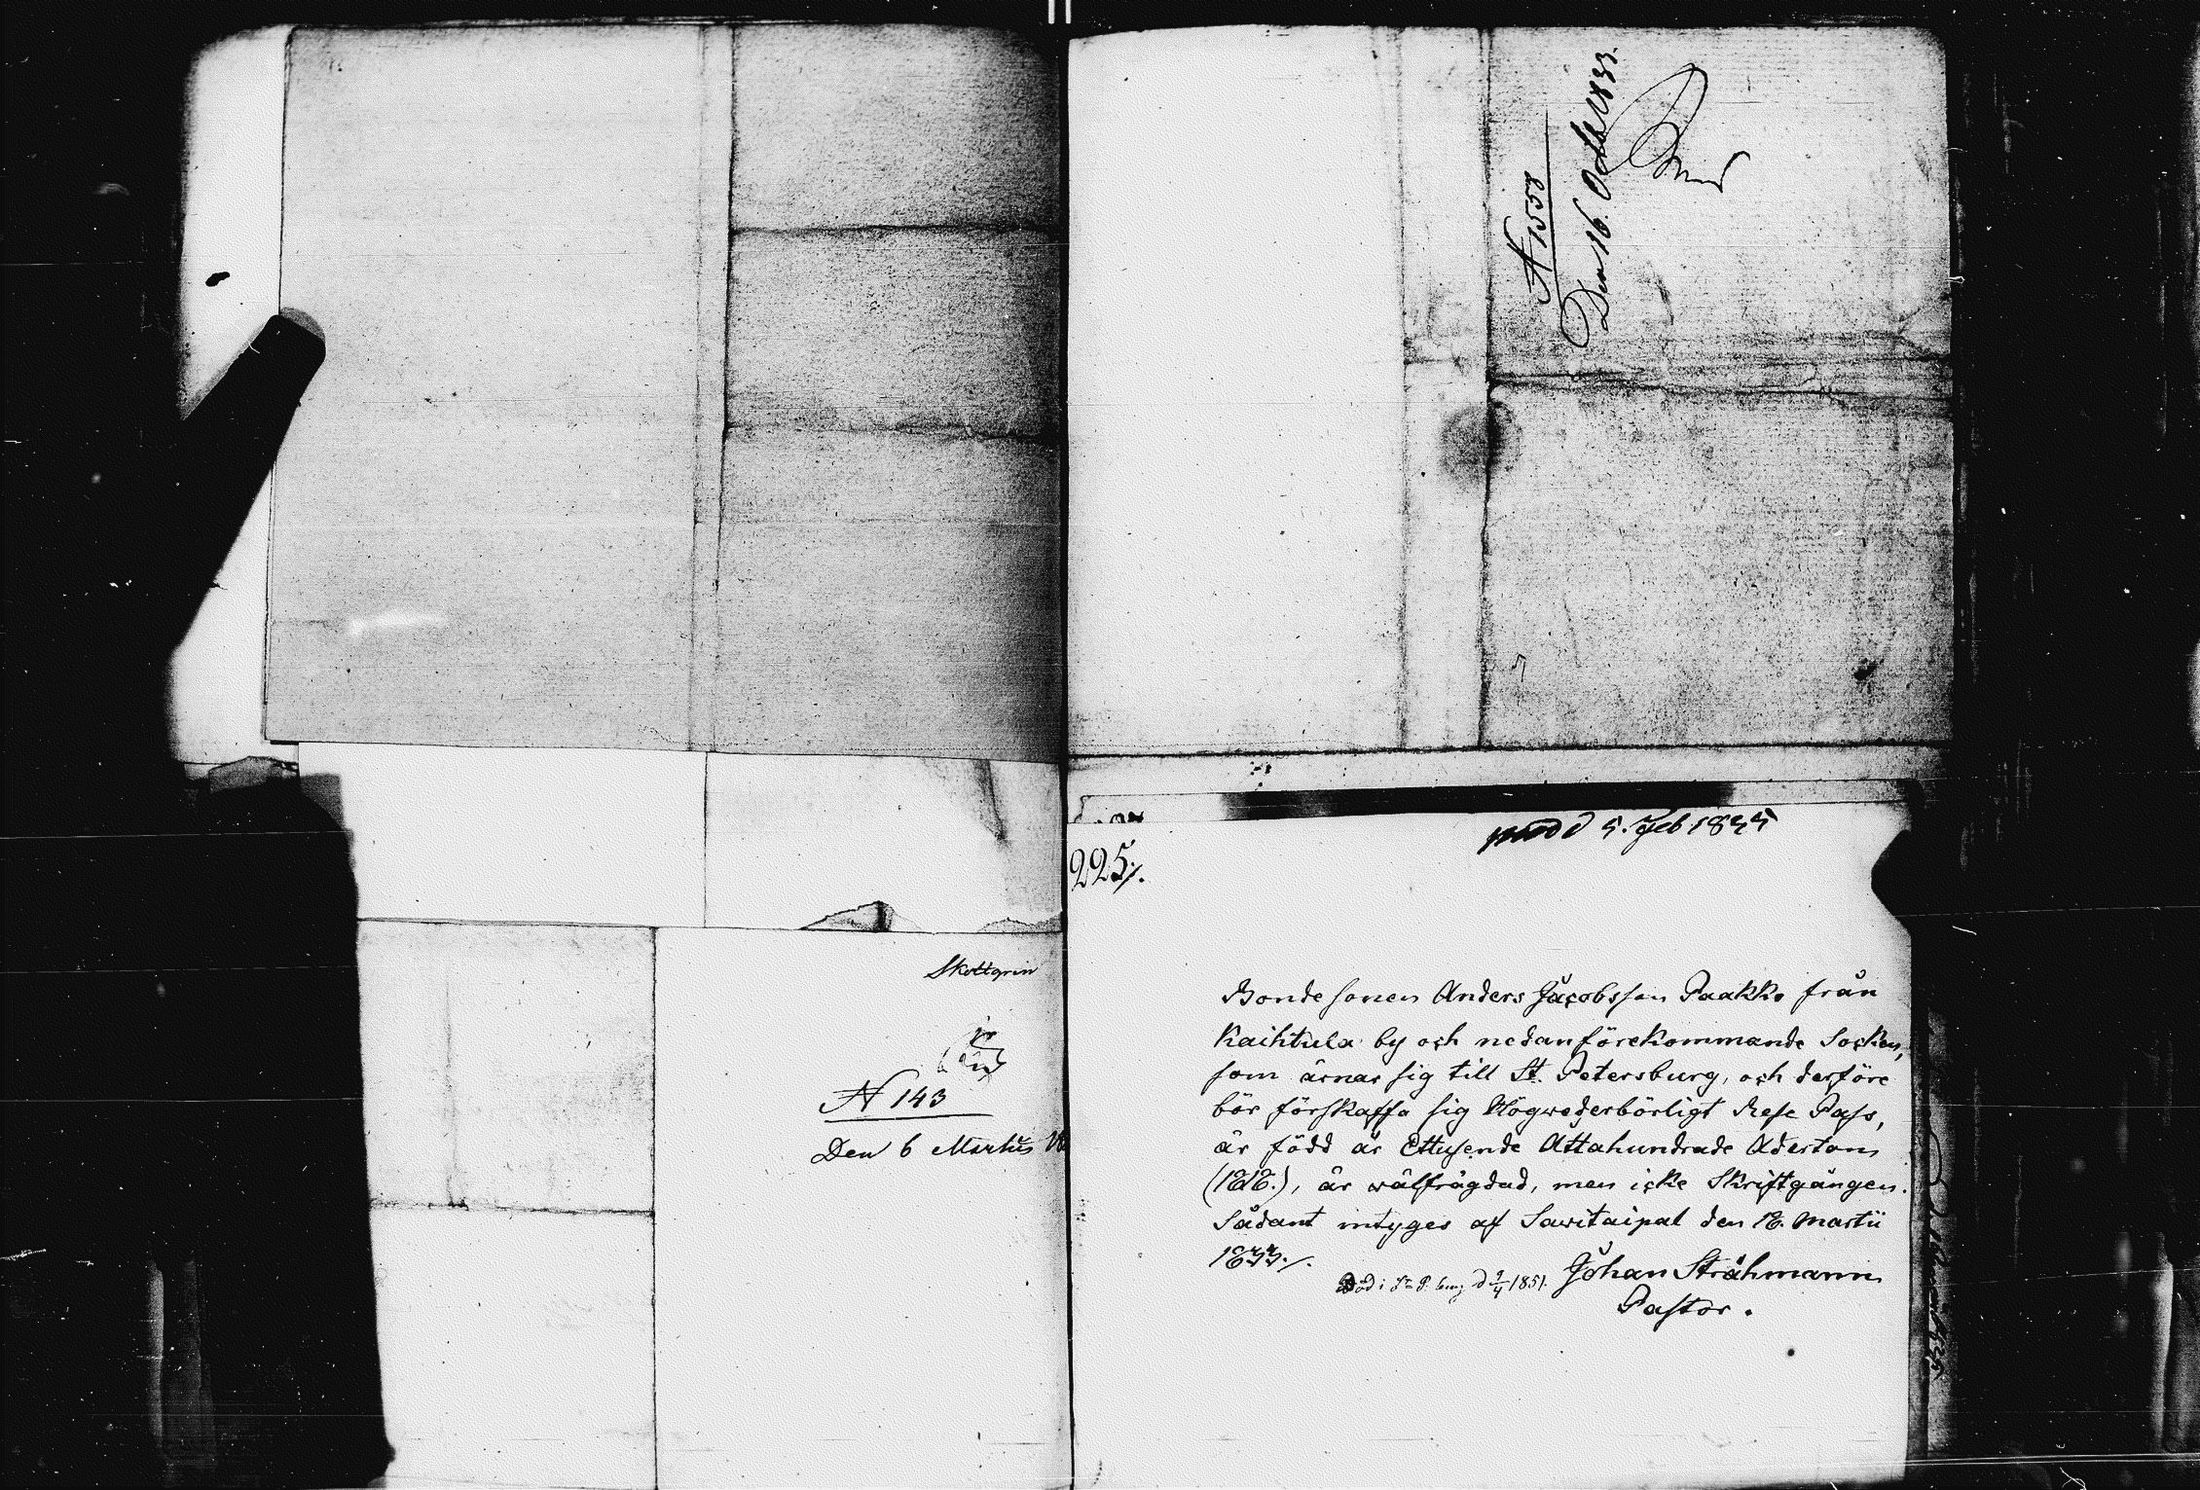 N 1558
Den 16. Octb 1833.
Skottgrin
N 143
Den 6 Martii
225./.
d 5. Feb 1835
Bondesonen Anders Jacobsson Paakko från
Kaihtula by och nedanförekommande Socken,
som ärnar sig till St. Petersburg, och derföre
bör förskaffa sig Högwederbörligt Rese Pass,
är född år Ettusende Attahundrade Aderton
(1818.), är wälfrägdad, men icke Skriftgången.
Sådant intyges af Sawitaipal den 18. Martii
1833./.
Död i St. P. burg d 9/4 1851. Johan Stråhmann
Pastor.